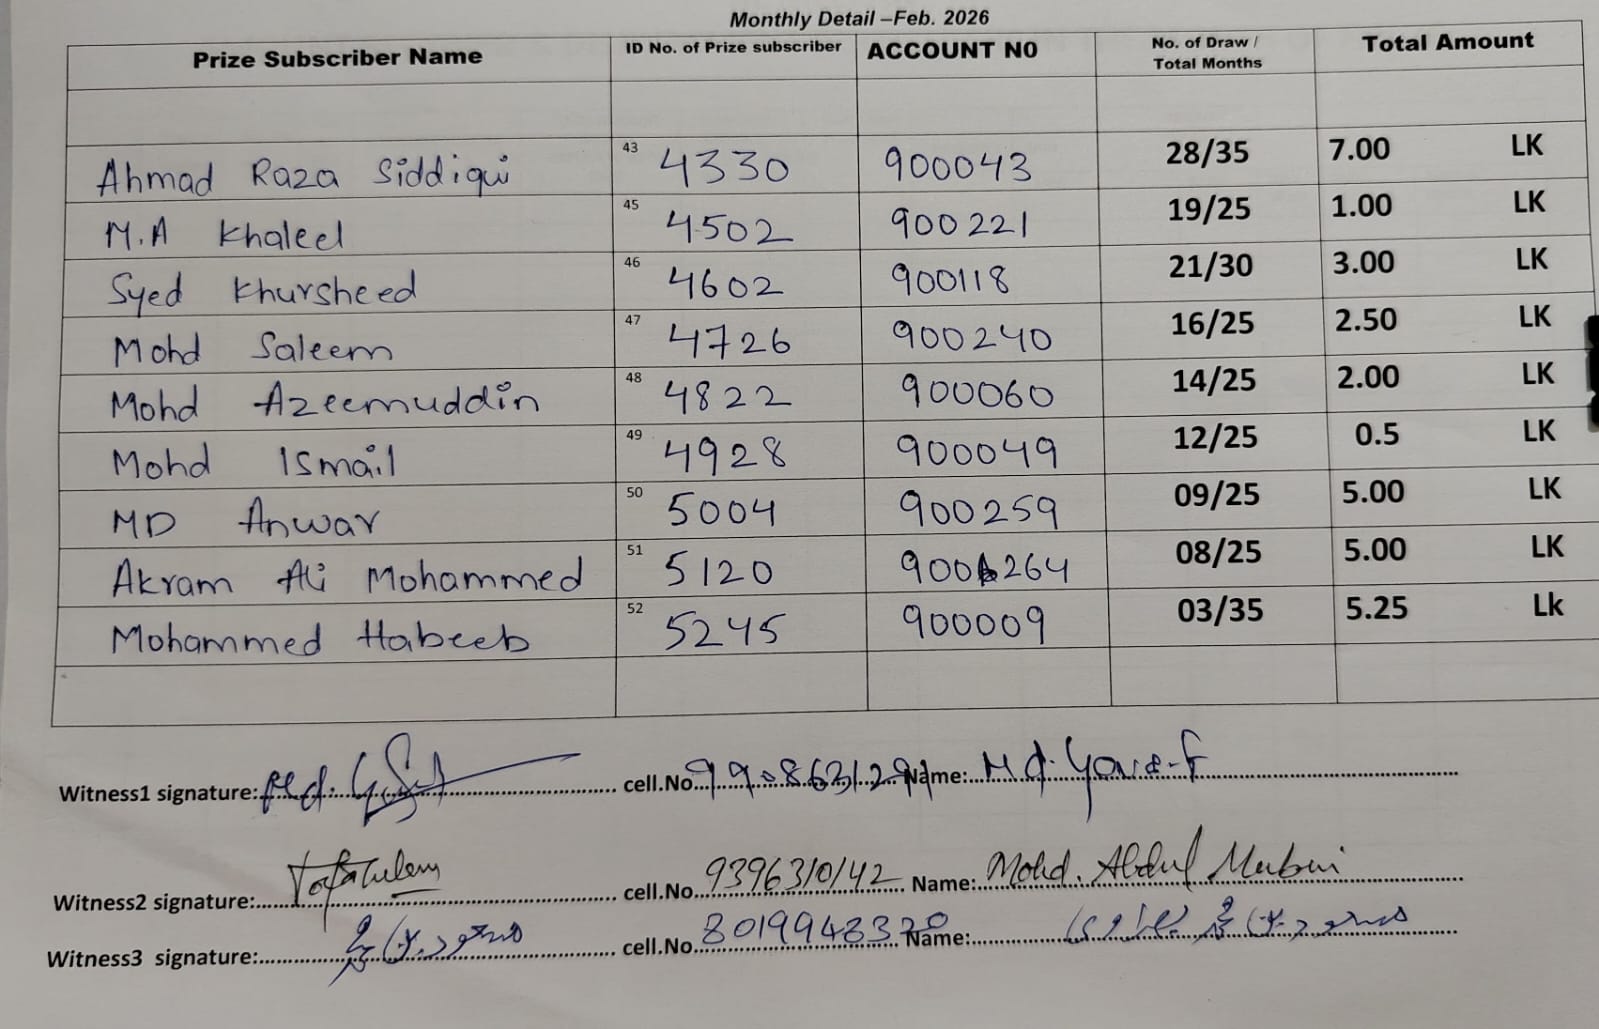 Monthly Detail –Feb. 2026
Prize Subscriber Name ID No. of Prize subscriber ACCOUNT NO No. of Draw / Total Months Total Amount
Ahmad Raza Siddiqui 43 4330 900043 28/35 7.00 LK
M.A Khaleel 45 4502 900221 19/25 1.00 LK
Syed Khursheed 46 4602 900118 21/30 3.00 LK
Mohd Saleem 47 4726 900240 16/25 2.50 LK
Mohd Azeemuddin 48 4822 900060 14/25 2.00 LK
Mohd Ismail 49 4928 900049 12/25 0.5 LK
MD Anwar 50 5004 900259 09/25 5.00 LK
Akram Ali Mohammed 51 5120 900264 08/25 5.00 LK
Mohammed Habeeb 52 5245 900009 03/35 5.25 Lk
Witness1 signature: Md. cell.No. Name: Md.
Witness2 signature: cell.No. 9396310142 Name: Mohd. Abdul
Witness3 signature: cell.No. Name: